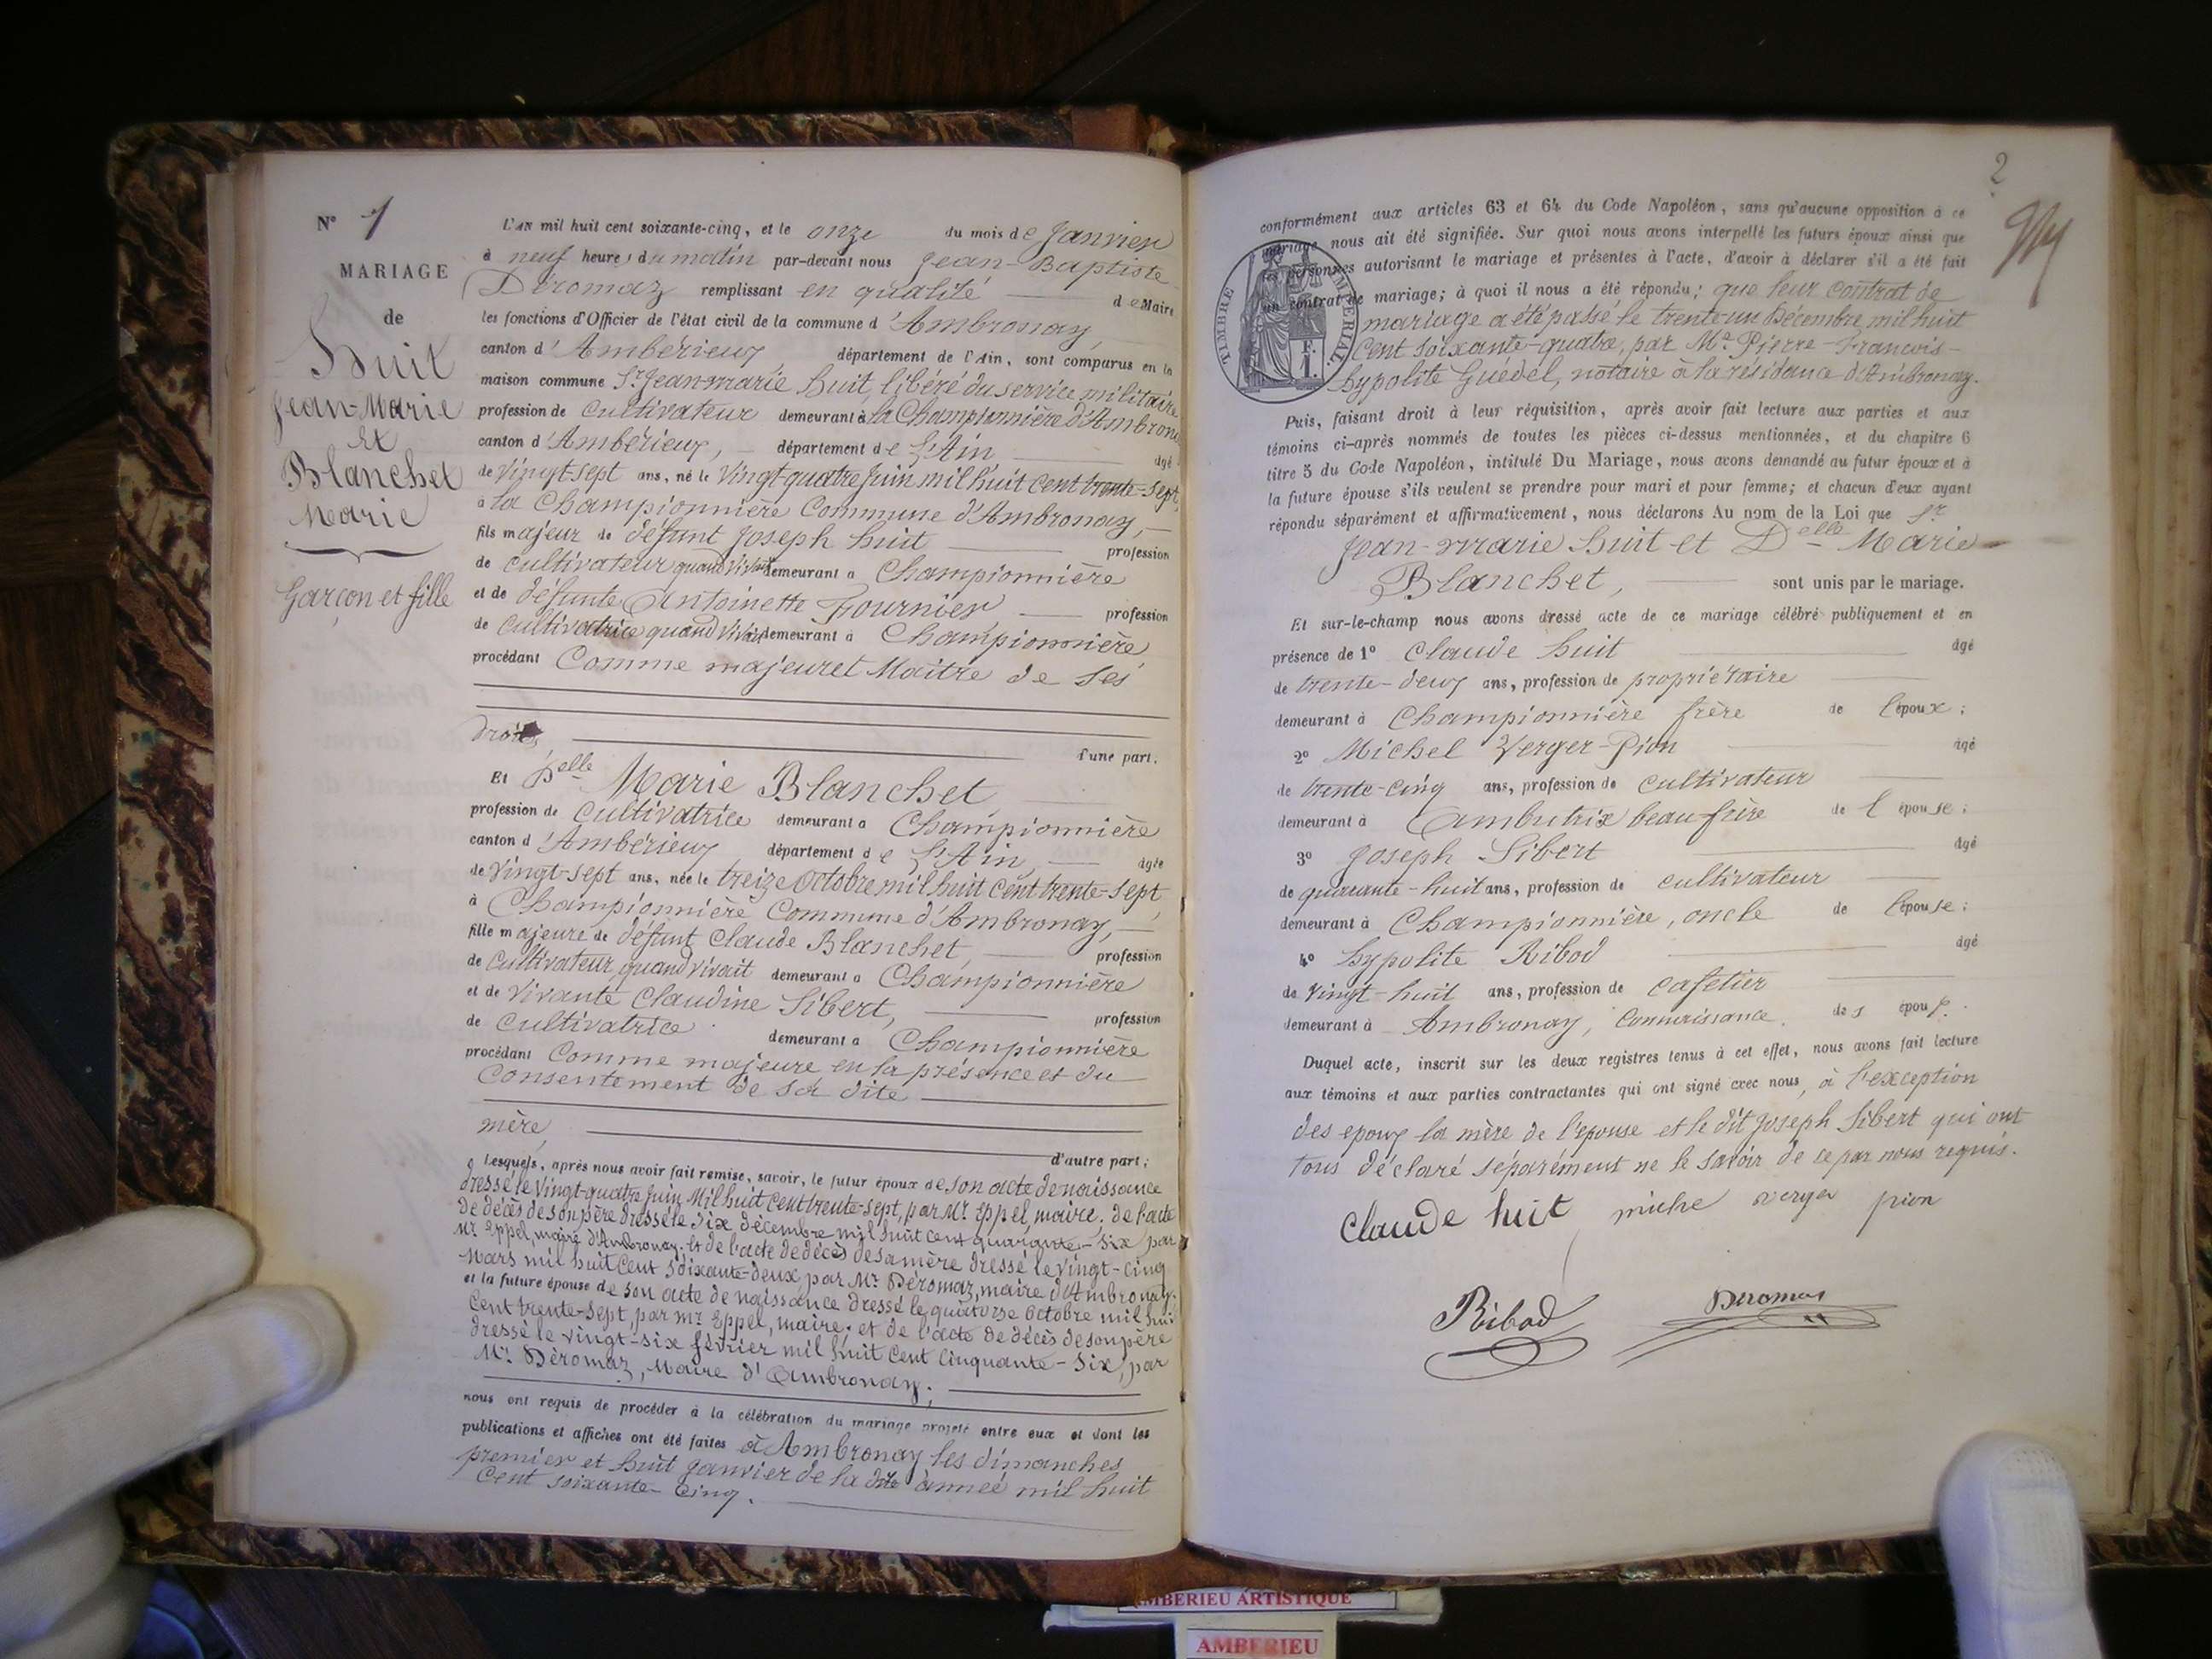 N° 1
MARIAGE
de
Huit
Jean-Marie
et
Blanchet
Marie
Garçon et fille
L'AN mil huit cent soixante-cinq, et le onze du mois de Janvier
à neuf heures du matin par-devant nous Jean-Baptiste
Déromaz remplissant en qualité de Maire
les fonctions d'Officier de l'état civil de la commune d'Ambronay,
canton d'Ambérieux département de l'Ain, sont comparus en la
maison commune Sr Jean-marie huit, libéré du service militaire
profession de cultivateur demeurant à la Championnière d'Ambronay
canton d'Ambérieux, département de L'Ain âgé
de vingt sept ans, né le vingt-quatre Juin mil huit cent trente-sept,
à la Championnière Commune d'Ambronay,
fils majeur de défunt Joseph huit profession
de cultivateur quand vivait demeurant à Championnière
et de défunte Antoinette Fournier profession
de cultivatrice quand vivait demeurant à Championnière
procédant Comme majeur et Maître de ses
droits d'une part.
Et Delle Marie Blanchet
profession de cultivatrice demeurant à Championnière
canton d'Ambérieux département de L'Ain âgée
de vingt-sept ans, née le treize Octobre mil huit cent trente-sept
à Championnière Commune d'Ambronay,
fille majeure de défunt Claude Blanchet, profession
de cultivateur quand vivait demeurant à Championnière
et de vivante Claudine Sibert, profession
de cultivatrice demeurant à Championnière
procédant Comme majeure en la présence et du
Consentement de sa dite
mère, d'autre part;
Lesquels, après nous avoir fait remise, savoir, le futur époux de son acte de naissance
dressé le vingt-quatre Juin Mil huit cent trente-sept, par Mr Eppel, maire; de l'acte
de décès de son père dressé le dix décembre mil huit cent quarante-six par
Mr Eppel, maire d'Ambronay. et de l'acte de décès de sa mère dressé le vingt-cinq
Mars mil huit Cent soixante-deux, par Mr Déromaz, maire d'Ambronay.
et la future épouse de son acte de naissance dressé le quatorze Octobre mil huit
Cent trente-sept, par Mr Eppel, maire; et de l'acte de décès de son père
dressé le vingt-six février mil huit Cent cinquante-six, par
Mr Déromaz, Maire d'Ambronay;
nous ont requis de procéder à la célébration du mariage projeté entre eux et dont les
publications et affiches ont été faites à Ambronay les dimanches
premier et huit Janvier de la dite année mil huit
Cent soixante-cinq.
2
conformément aux articles 63 et 64 du Code Napoléon, sans qu'aucune opposition à ce
mariage nous ait été signifiée. Sur quoi nous avons interpellé les futurs époux ainsi que
les personnes autorisant le mariage et présentes à l'acte, d'avoir à déclarer s'il a été fait
un contrat de mariage; à quoi il nous a été répondu: que leur contrat de
mariage a été passé le trente-un Décembre mil huit
Cent soixante-quatre, par Me Pierre-Francois-
hypolite Guédel, notaire à la résidance d'Ambronay.
TIMBRE IMPÉRIAL
F.
1.
Puis, faisant droit à leur réquisition, après avoir fait lecture aux parties et aux
témoins ci-après nommés de toutes les pièces ci-dessus mentionnées, et du chapitre 6
titre 5 du Code Napoléon, intitulé Du Mariage, nous avons demandé au futur époux et à
la future épouse s'ils veulent se prendre pour mari et pour femme; et chacun d'eux ayant
répondu séparément et affirmativement, nous déclarons Au nom de la Loi que Sr
Jean-marie huit et Delle Marie
Blanchet, sont unis par le mariage.
Et sur-le-champ nous avons dressé acte de ce mariage célébré publiquement et en
présence de 1° Claude huit âgé
de trente-deux ans, profession de propriétaire
demeurant à Championnière frère de l'époux;
2° Michel Verger-Pion âgé
de trente-cinq ans, profession de cultivateur
demeurant à Ambutrix beau frère de l'épouse;
3° Joseph Sibert âgé
de quarante-huit ans, profession de cultivateur
demeurant à Championnière, oncle de l'épouse;
4° hypolite Ribod âgé
de vingt-huit ans, profession de cafetier
demeurant à Ambronay, Connaissance. des époux.
Duquel acte, inscrit sur les deux registres tenus à cet effet, nous avons fait lecture
aux témoins et aux parties contractantes qui ont signé avec nous, à l'exception
des epoux la mère de l'épouse et le dit Joseph Sibert qui ont
tous déclaré séparément ne le savoir de ce par nous requis.
Claude huit miche verger pion
Ribod Deromas
AMBERIEU ARTISTIQUE
AMBERIEU